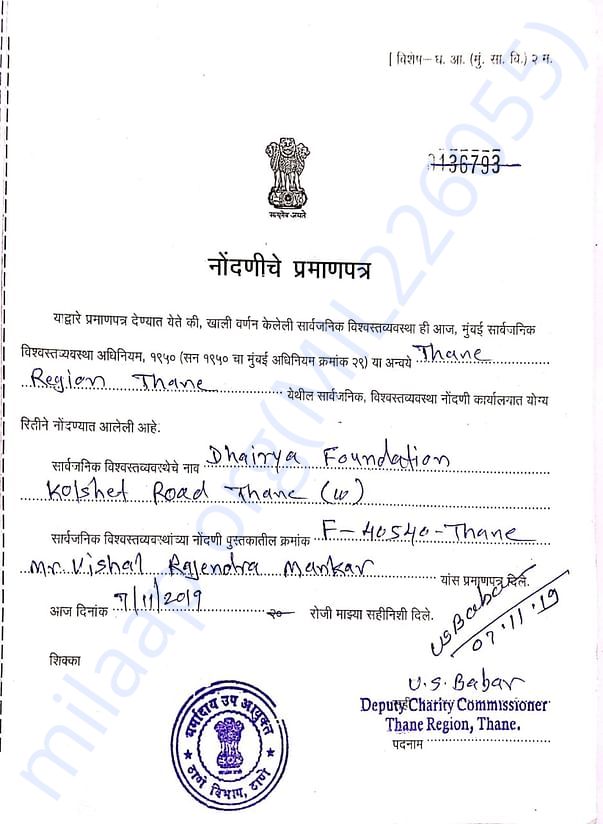 [ विशेष– घ. आ. (मुं. सा. वि.) २ म.
136793
सत्यमेव जयते
नोंदणीचे प्रमाणपत्र
याद्वारे प्रमाणपत्र देण्यात येते की, खाली वर्णन केलेली सार्वजनिक विश्वस्तव्यवस्था ही आज, मुंबई सार्वजनिक
विश्वस्तव्यवस्था अधिनियम, १९५० (सन १९५० चा मुंबई अधिनियम क्रमांक २९) या अन्वये Thane
Region Thane येथील सार्वजनिक, विश्वस्तव्यवस्था नोंदणी कार्यालगात योग्य
रितीने नोंदण्यात आलेली आहे.
सार्वजनिक विश्वस्तव्यवस्थेचे नाव Dhairya Foundation
Kolshet Road Thane (W)
सार्वजनिक विश्वस्तव्यवस्थांच्या नोंदणी पुस्तकातील क्रमांक F-40540-Thane
Mr. Vishal Rajendra Mankar यांस प्रमाणपत्र दिले.
आज दिनांक 7/11/2019 २० रोजी माझ्या सहीनिशी दिले.
USBabar
07.11.19
शिक्का
U.S. Babar
Deputy Charity Commissioner
Thane Region, Thane.
पदनाम
धर्मादाय उप आयुक्त
ठाणे विभाग, ठाणे
milaap.org(MIL226955)